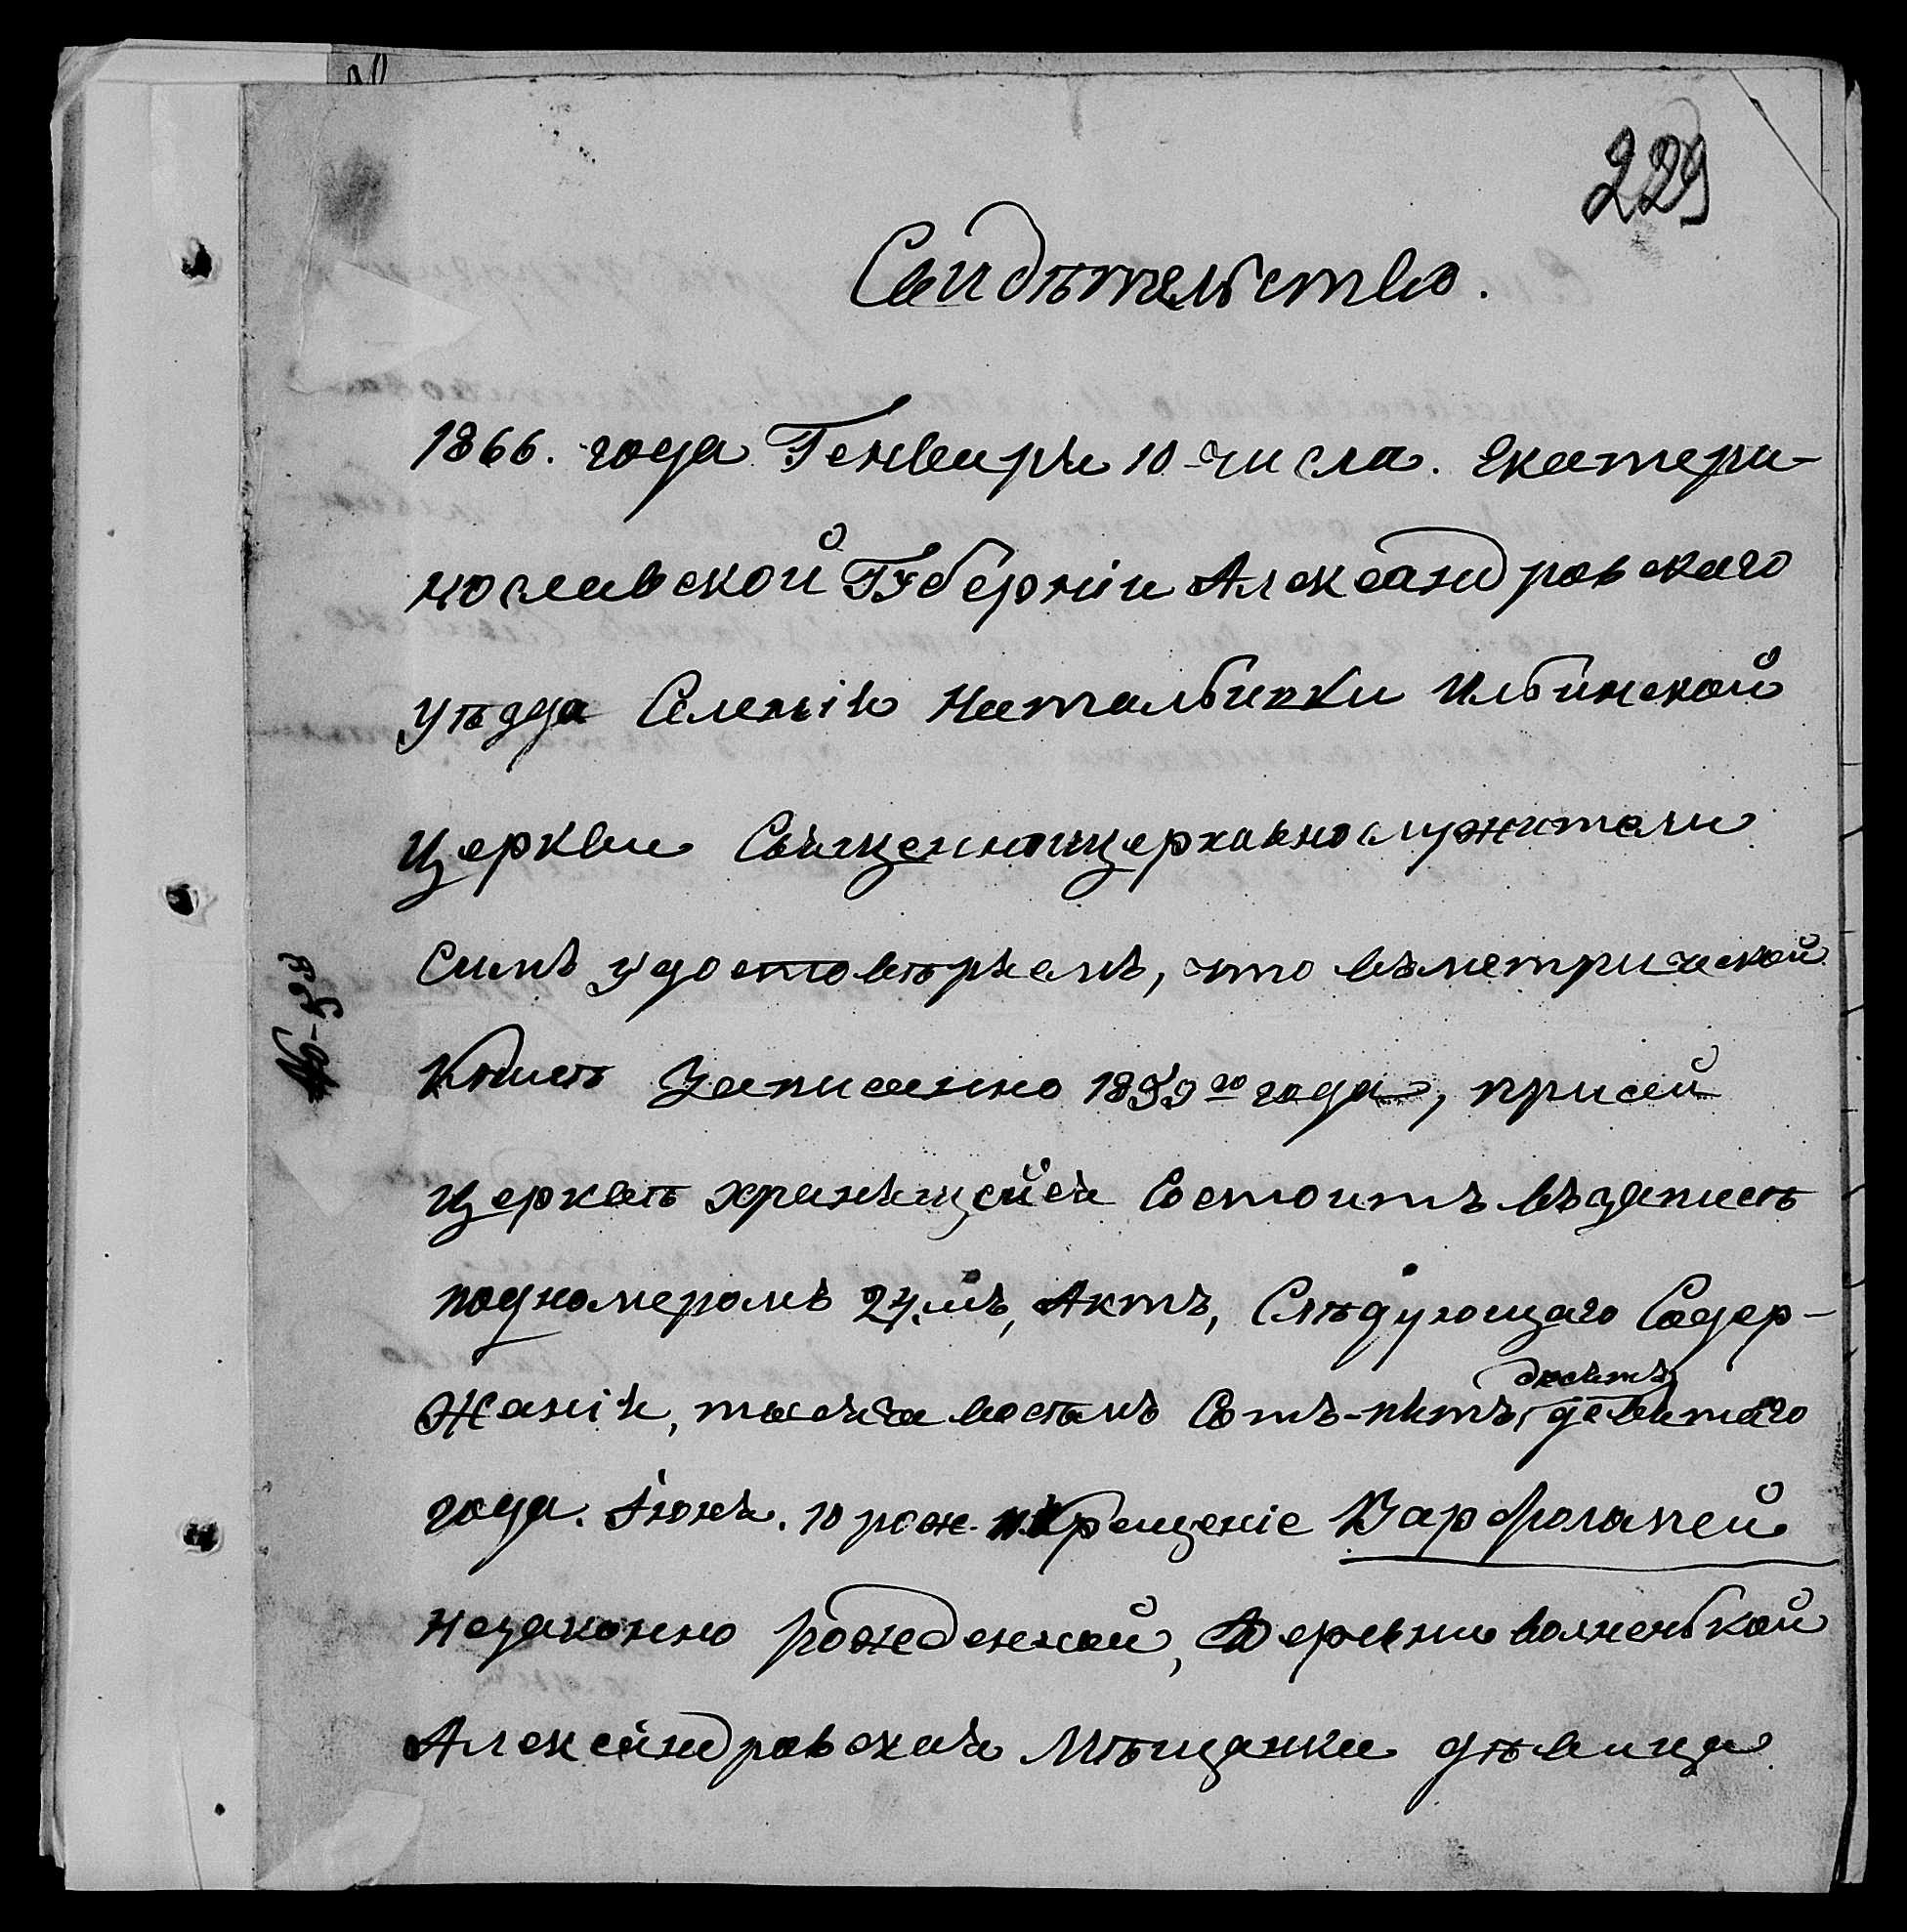 229
Свидѣтельство.
1866. года Генваря 10 числа. Екатери-
нославской Губерніи Александровскаго
уѣзда Селенія Натальивки Ильинской
Церкви Священноцерковнослужители
Симъ удостовѣряемъ, что въ метрической
Книгѣ Записанно 1859го года, при сей
Церквѣ хранящейся Состоитъ въ записѣ
под номеромъ 24.мъ, Актъ, Слѣдующаго Содер-
жанія, тысяча восѣмъ Сотъ-пятъ
десятъ
девятаго
года. Іюня. 10 рож. и Крещеніе Варфоламей
незаконно рожденной, Деревни
Александровская Мѣщанка дѣвица